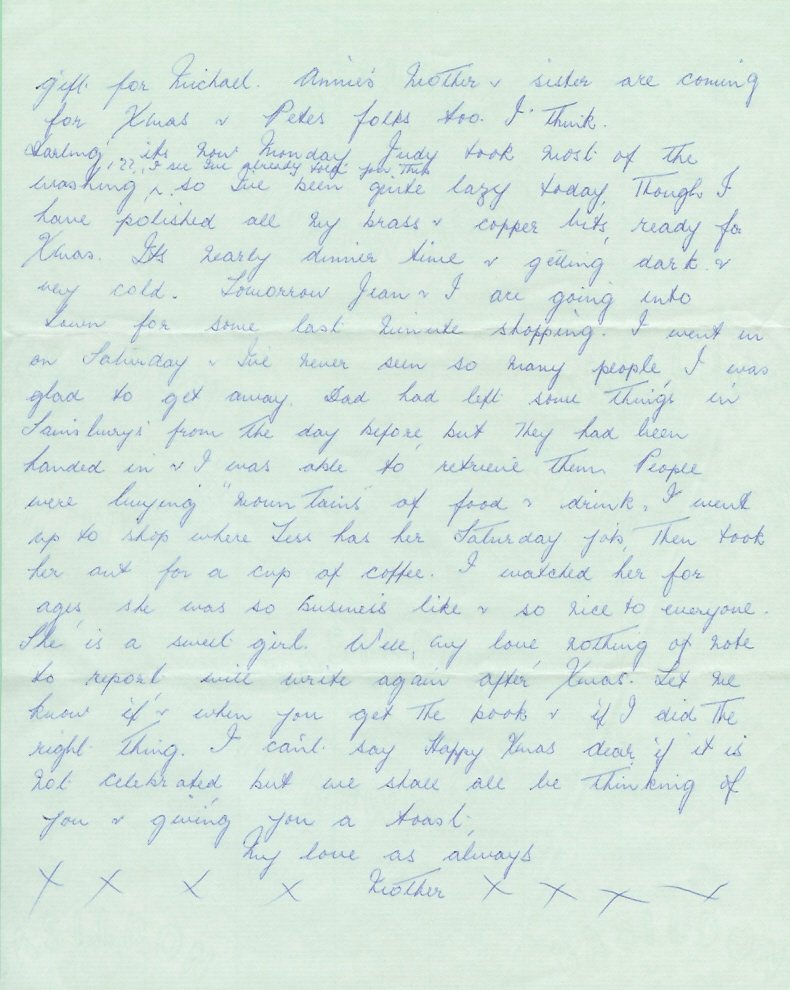 gift for Michael. Annie's Mother & sister are coming
for Xmas & Petes folks too. I think.
Darling, its now Monday Judy took most of the
, ??, I see I've already told you this
washing, so I've been quite lazy today, Though I
have polished all my brass & copper bits, ready for
Xmas. Its nearly dinner time & getting dark &
very cold. Tomorrow Jean & I are going into
Town for some last minute shopping. I went in
on Saturday & I've never seen so many people, I was
glad to get away. Dad had left some things in
Sainsbury's from the day before, but they had been
handed in & I was able to retrieve them. People
were buying "mountains" of food & drink. I went
up to shop where Tess has her Saturday job, Then took
her out for a cup of coffee. I watched her for
ages, she was so business like & so nice to everyone.
She is a sweet girl. Well, my love nothing of note
to report will write again after Xmas. Let me
know if & when you get the book & if I did the
right thing. I can't say Happy Xmas dear, if it is
not celebrated, but we shall all be thinking of
you & giving you a toast,
My love as always
X X X X Mother X X X X